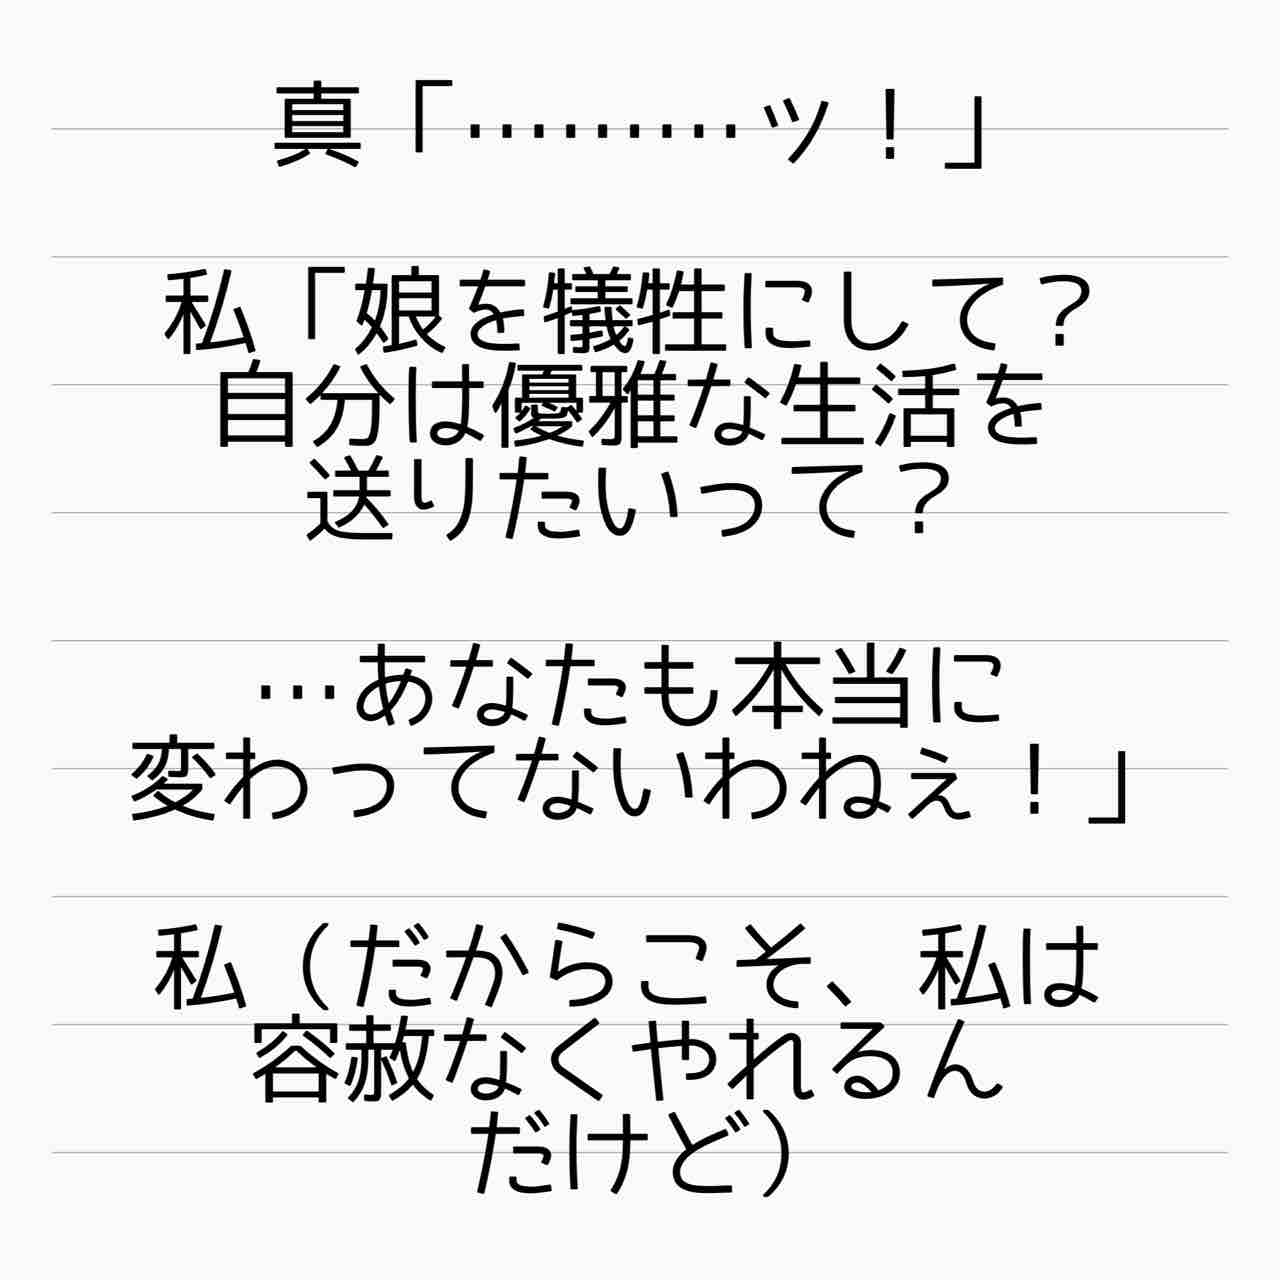 真「………ッ！」
私「娘を犠牲にして？
自分は優雅な生活を
送りたいって？
…あなたも本当に
変わってないわねぇ！」
私（だからこそ、私は
容赦なくやれるん
だけど）